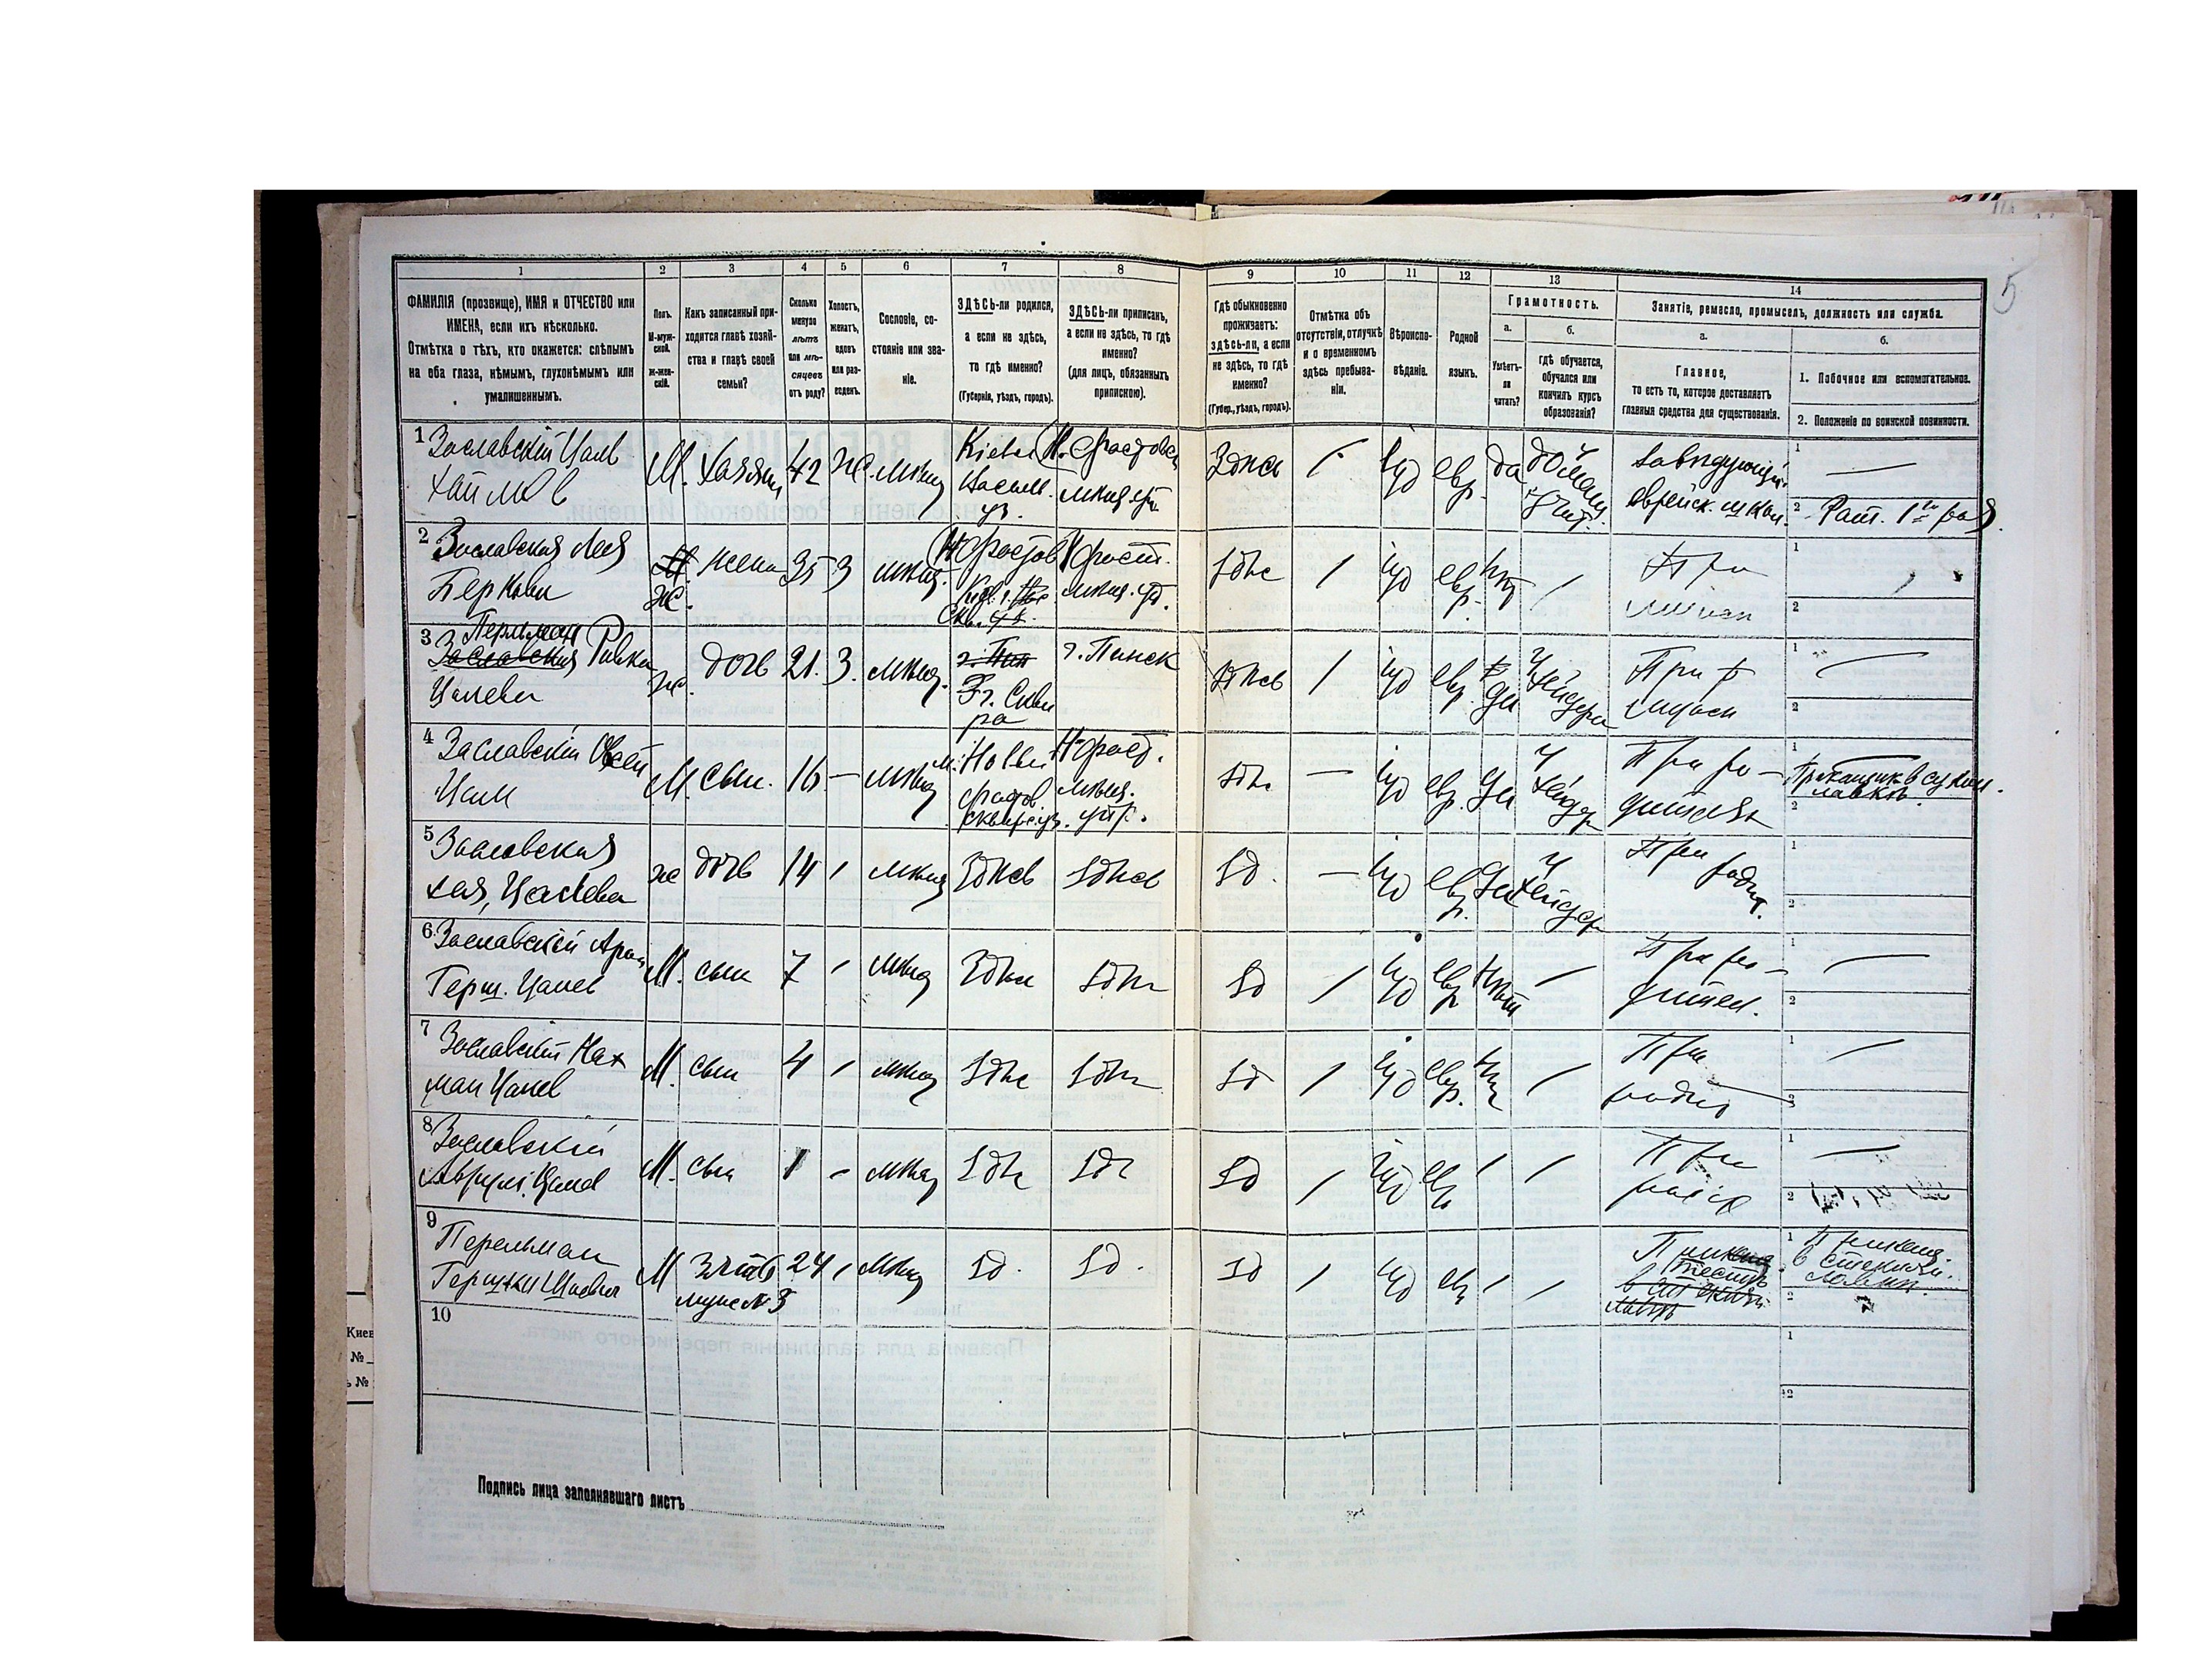 1 2 3 4 5 6 7 8 9 10 11 12 13 14
5
ФАМИЛІЯ (прозвище), ИМЯ и ОТЧЕСТВО или
ИМЕНА, если ихъ нѣсколько.
Отмѣтка о тѣхъ, кто окажется: слѣпымъ
на оба глаза, нѣмымъ, глухонѣмымъ или
умалишеннымъ.
Полъ.
М-муж-
ской.
Ж-жен-
скій.
Какъ записанный при-
ходится главѣ хозяй-
ства и главѣ своей
семьи?
Сколько
минуло
лѣтъ
или мѣ-
сяцевъ
отъ роду?
Холостъ,
женатъ,
вдовъ
или раз-
веденъ.
Сословіе, со-
стояніе или зва-
ніе.
ЗДѢСЬ-ли родился,
а если не здѣсь,
то гдѣ именно?
(Губернія, уѣздъ, городъ).
ЗДѢСЬ-ли приписанъ,
а если не здѣсь, то гдѣ
именно?
(для лицъ, обязанныхъ
припискою).
Гдѣ обыкновенно
проживаетъ:
здѣсь-ли, а если
не здѣсь, то гдѣ
именно?
(Губер., уѣздъ, городъ).
Отмѣтка объ
отсутствіи, отлучкѣ
и о временномъ
здѣсь пребыва-
ніи.
Вѣроиспо-
вѣданіе.
Родной
языкъ.
Грамотность.
а.
Умѣетъ-
ли
читать?
б.
Гдѣ обучается,
обучался или
кончилъ курсъ
образованія?
Занятіе, ремесло, промыселъ, должность или служба.
а.
Главное,
то есть то, которое доставляетъ
главныя средства для существованія.
б.
1. Побочное или вспомогательное.
2. Положеніе по воинской повинности.
1 Заславскій Цаль
М. Хозяин 42 Ж. мѣщ
Васильк.
уз.
Здѣсь / іуд евр. да
завѣдующій
еврейск. школ.
1 —
2 Рат. 1го раз.
2 Заславская Лея
Беркова
Ж. жена 35 З мѣщ.
Скв. уѣ.
здѣс / іуд евр. нѣт /
При
мужѣ
1
2
3 Перельман
Заславская Ривка
Цалева
ж. дочь 21. З. мѣщ.
г. Пин
г. Сквира
г. Пинск
здѣсь / іуд евр. да
у хейдера
При
1
2
4 Заславскій
Цал
М. сын. 16 — мѣщ
м. Новый
Фастов
сквирс. уз.
Н-Фаст.
мѣщ.
упр.
здѣс — іуд евр. да
у
хейдер
При ро-
дителях
1 Приказчик в сукон.
лавкѣ.
2
5 Заславская
Хая, Цалева
ж дочь 14 / мѣщ здѣсь здѣсь
зд. — іуд евр. да
у
хейдер
При родит.
1
2
6 Заславскій Арон
Герш. Цалев
М. сын 7 / мѣщ здѣс здѣс
зд / іуд евр нѣт —
При ро-
дител.
1 —
2
7 Заславскій Нах
ман Цалев
М. сын 4 / мѣщ здѣс здѣс
зд / іуд евр. нѣт /
При
родит
1 —
2
8 Заславскій
Цалев
М. сын 1 - мѣщ здѣс зд
зд / іуд евр / /
При
1 —
2
9 Перельман
Гершки
М зять 24 / мѣщ зд. зд.
муж № 3
зд / іуд евр / /
тестѣ
1
лавки.
2
10
1
2
Подпись лица заполнявшаго листъ
Киев
№
№